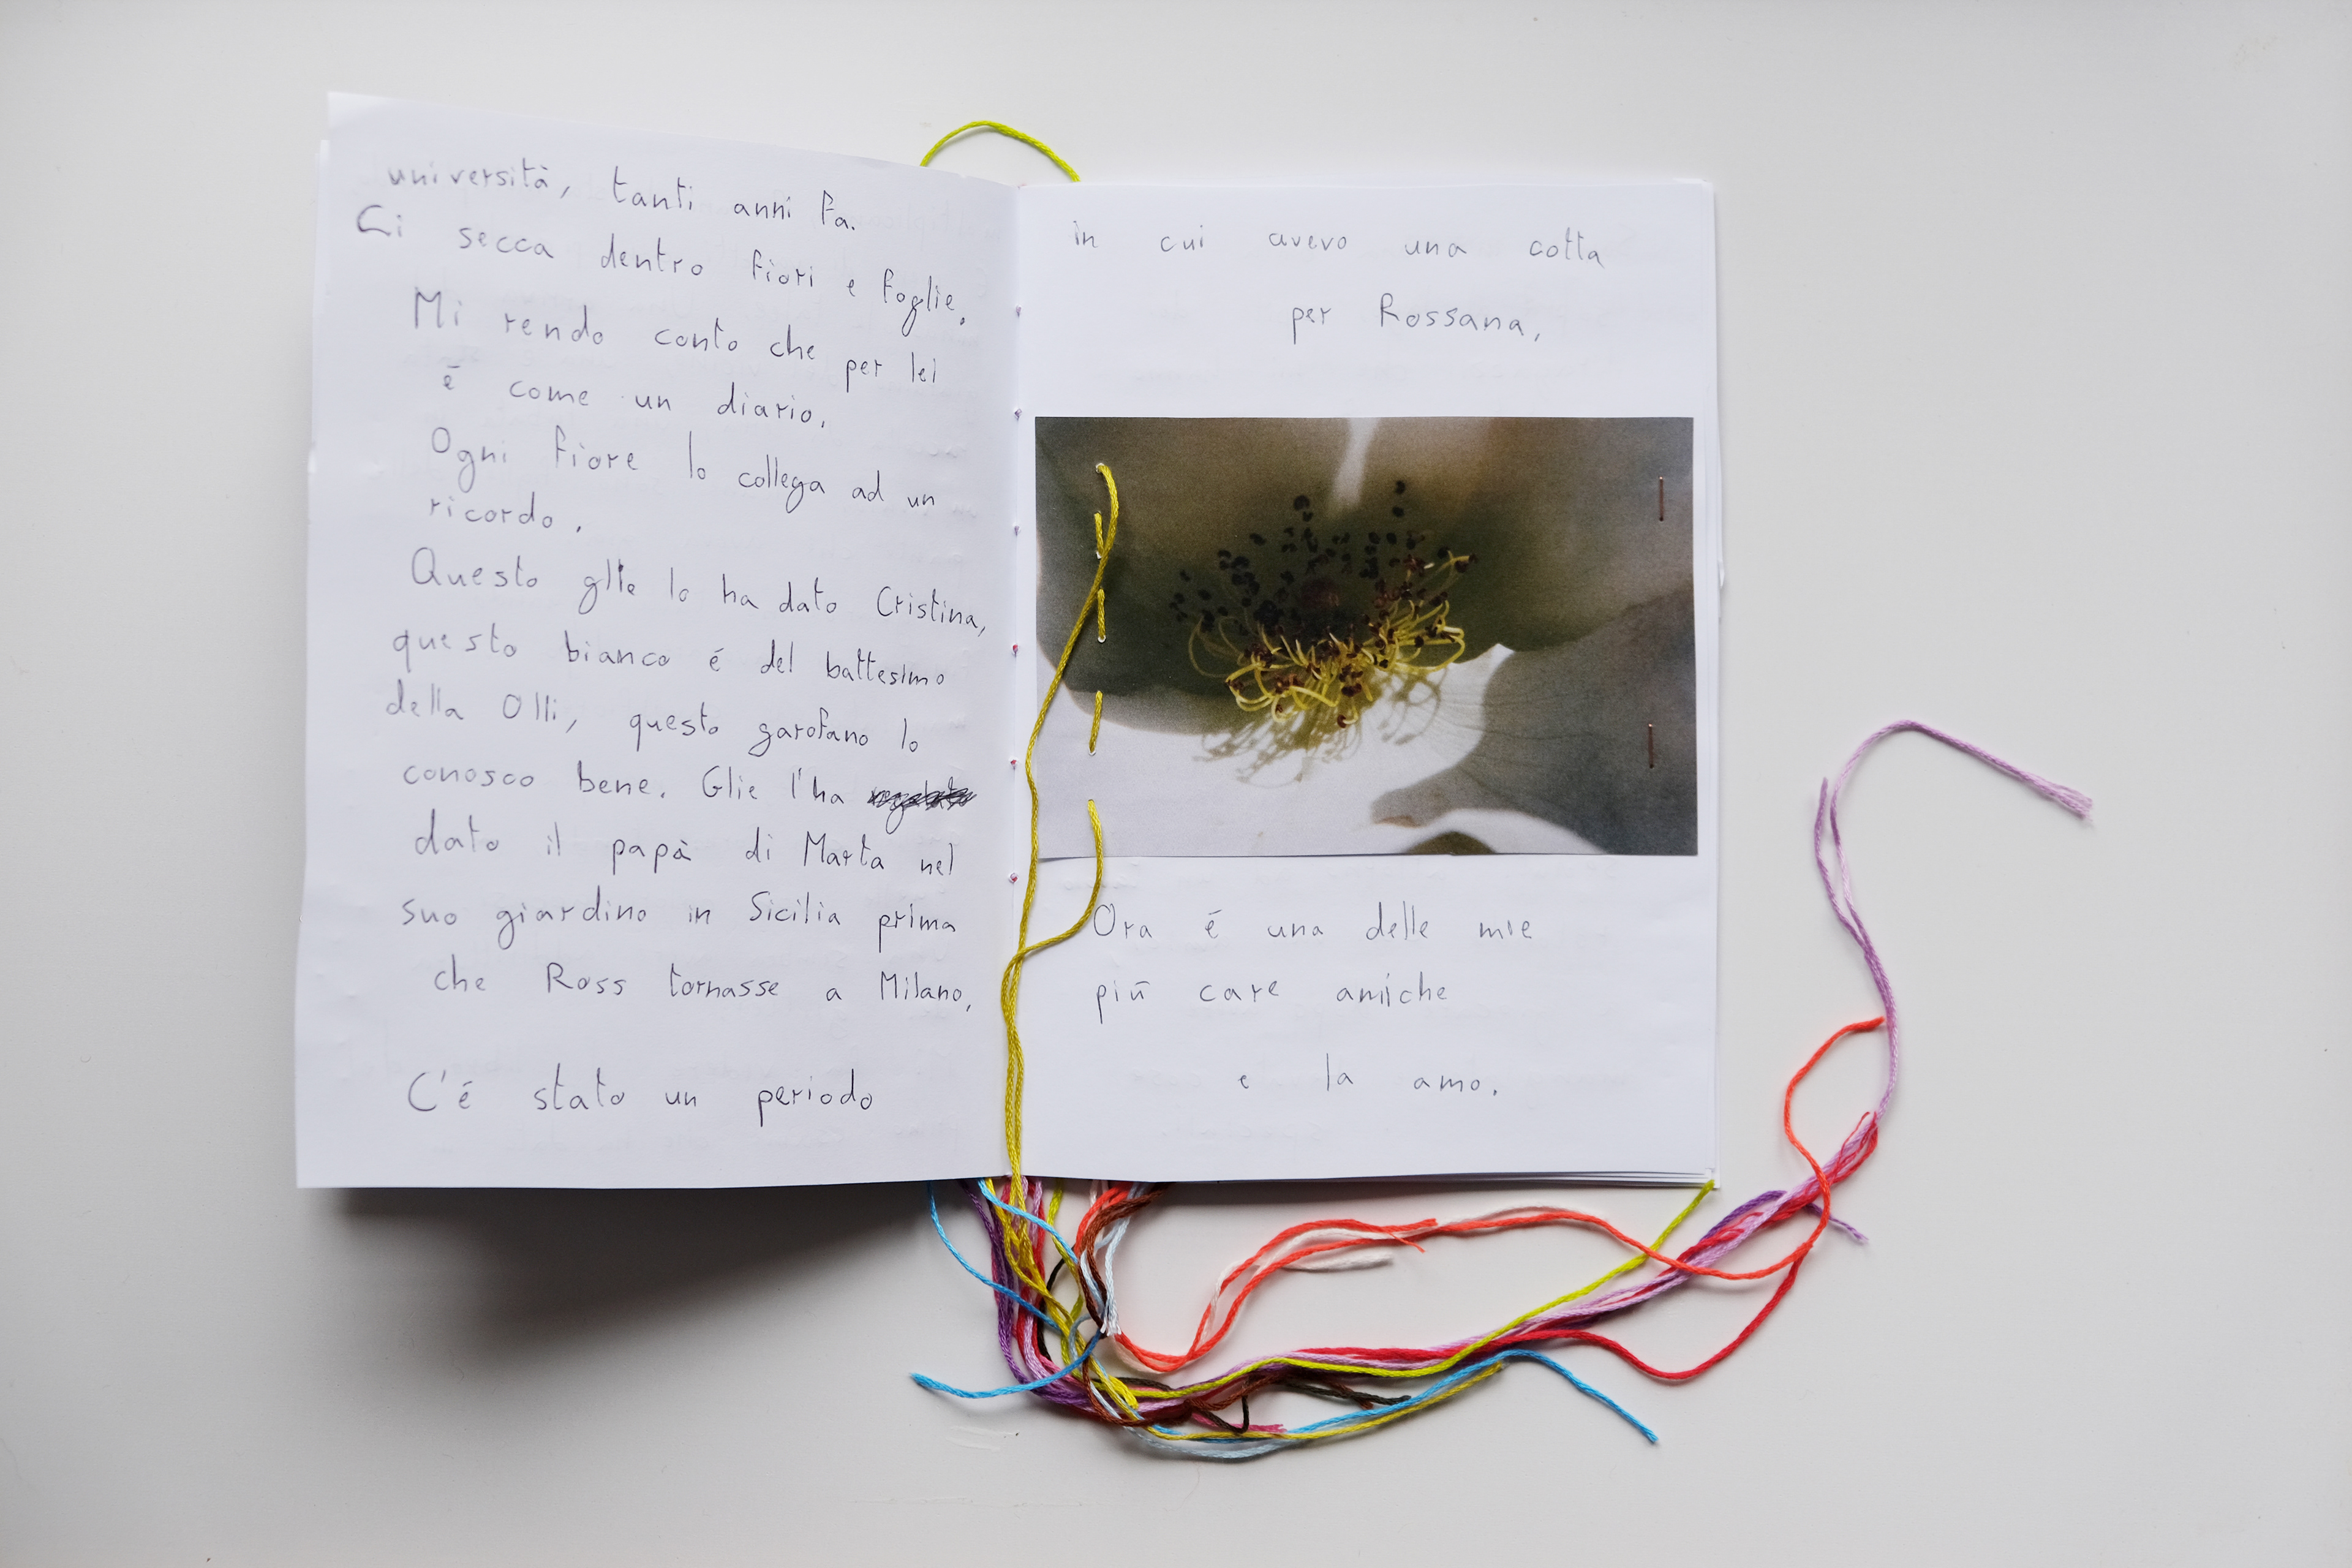 università, tanti anni fa.
Ci secca dentro fiori e foglie.
Mi rendo conto che per lei
é come un diario.
Ogni fiore lo collega ad un
ricordo.
Questo glie lo ha dato Cristina,
questo bianco é del battesimo
della Olli, questo garofano lo
conosco bene. Glie l'ha
dato il papà di Marta nel
suo giardino in Sicilia prima
che Ross tornasse a Milano,
C'é stato un periodo
in cui avevo una cotta
per Rossana,
Ora é una delle mie
più care amiche
e la amo.